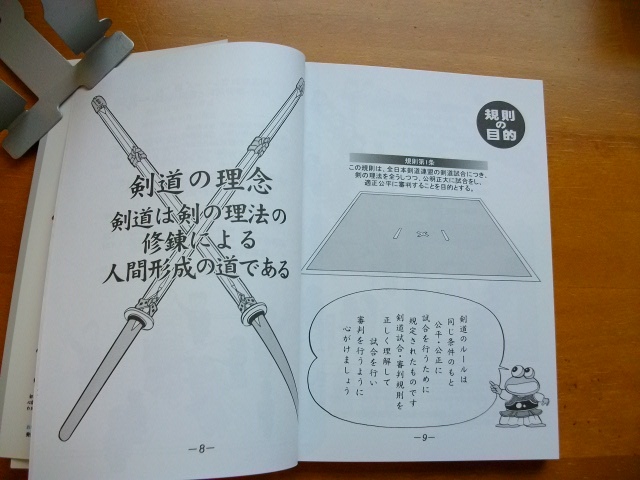 剣道の理念
剣道は剣の理法の
修錬による
人間形成の道である
—8—
規則
の
目的
規則第1条
この規則は、全日本剣道連盟の剣道試合につき、
剣の理法を全うしつつ、公明正大に試合をし、
適正公平に審判することを目的とする。
剣道のルールは
同じ条件のもと
公平・公正に
試合を行うために
規定されたものです
剣道試合・審判規則を
正しく理解して
試合を行い
審判を行うように
心がけましょう
—9—